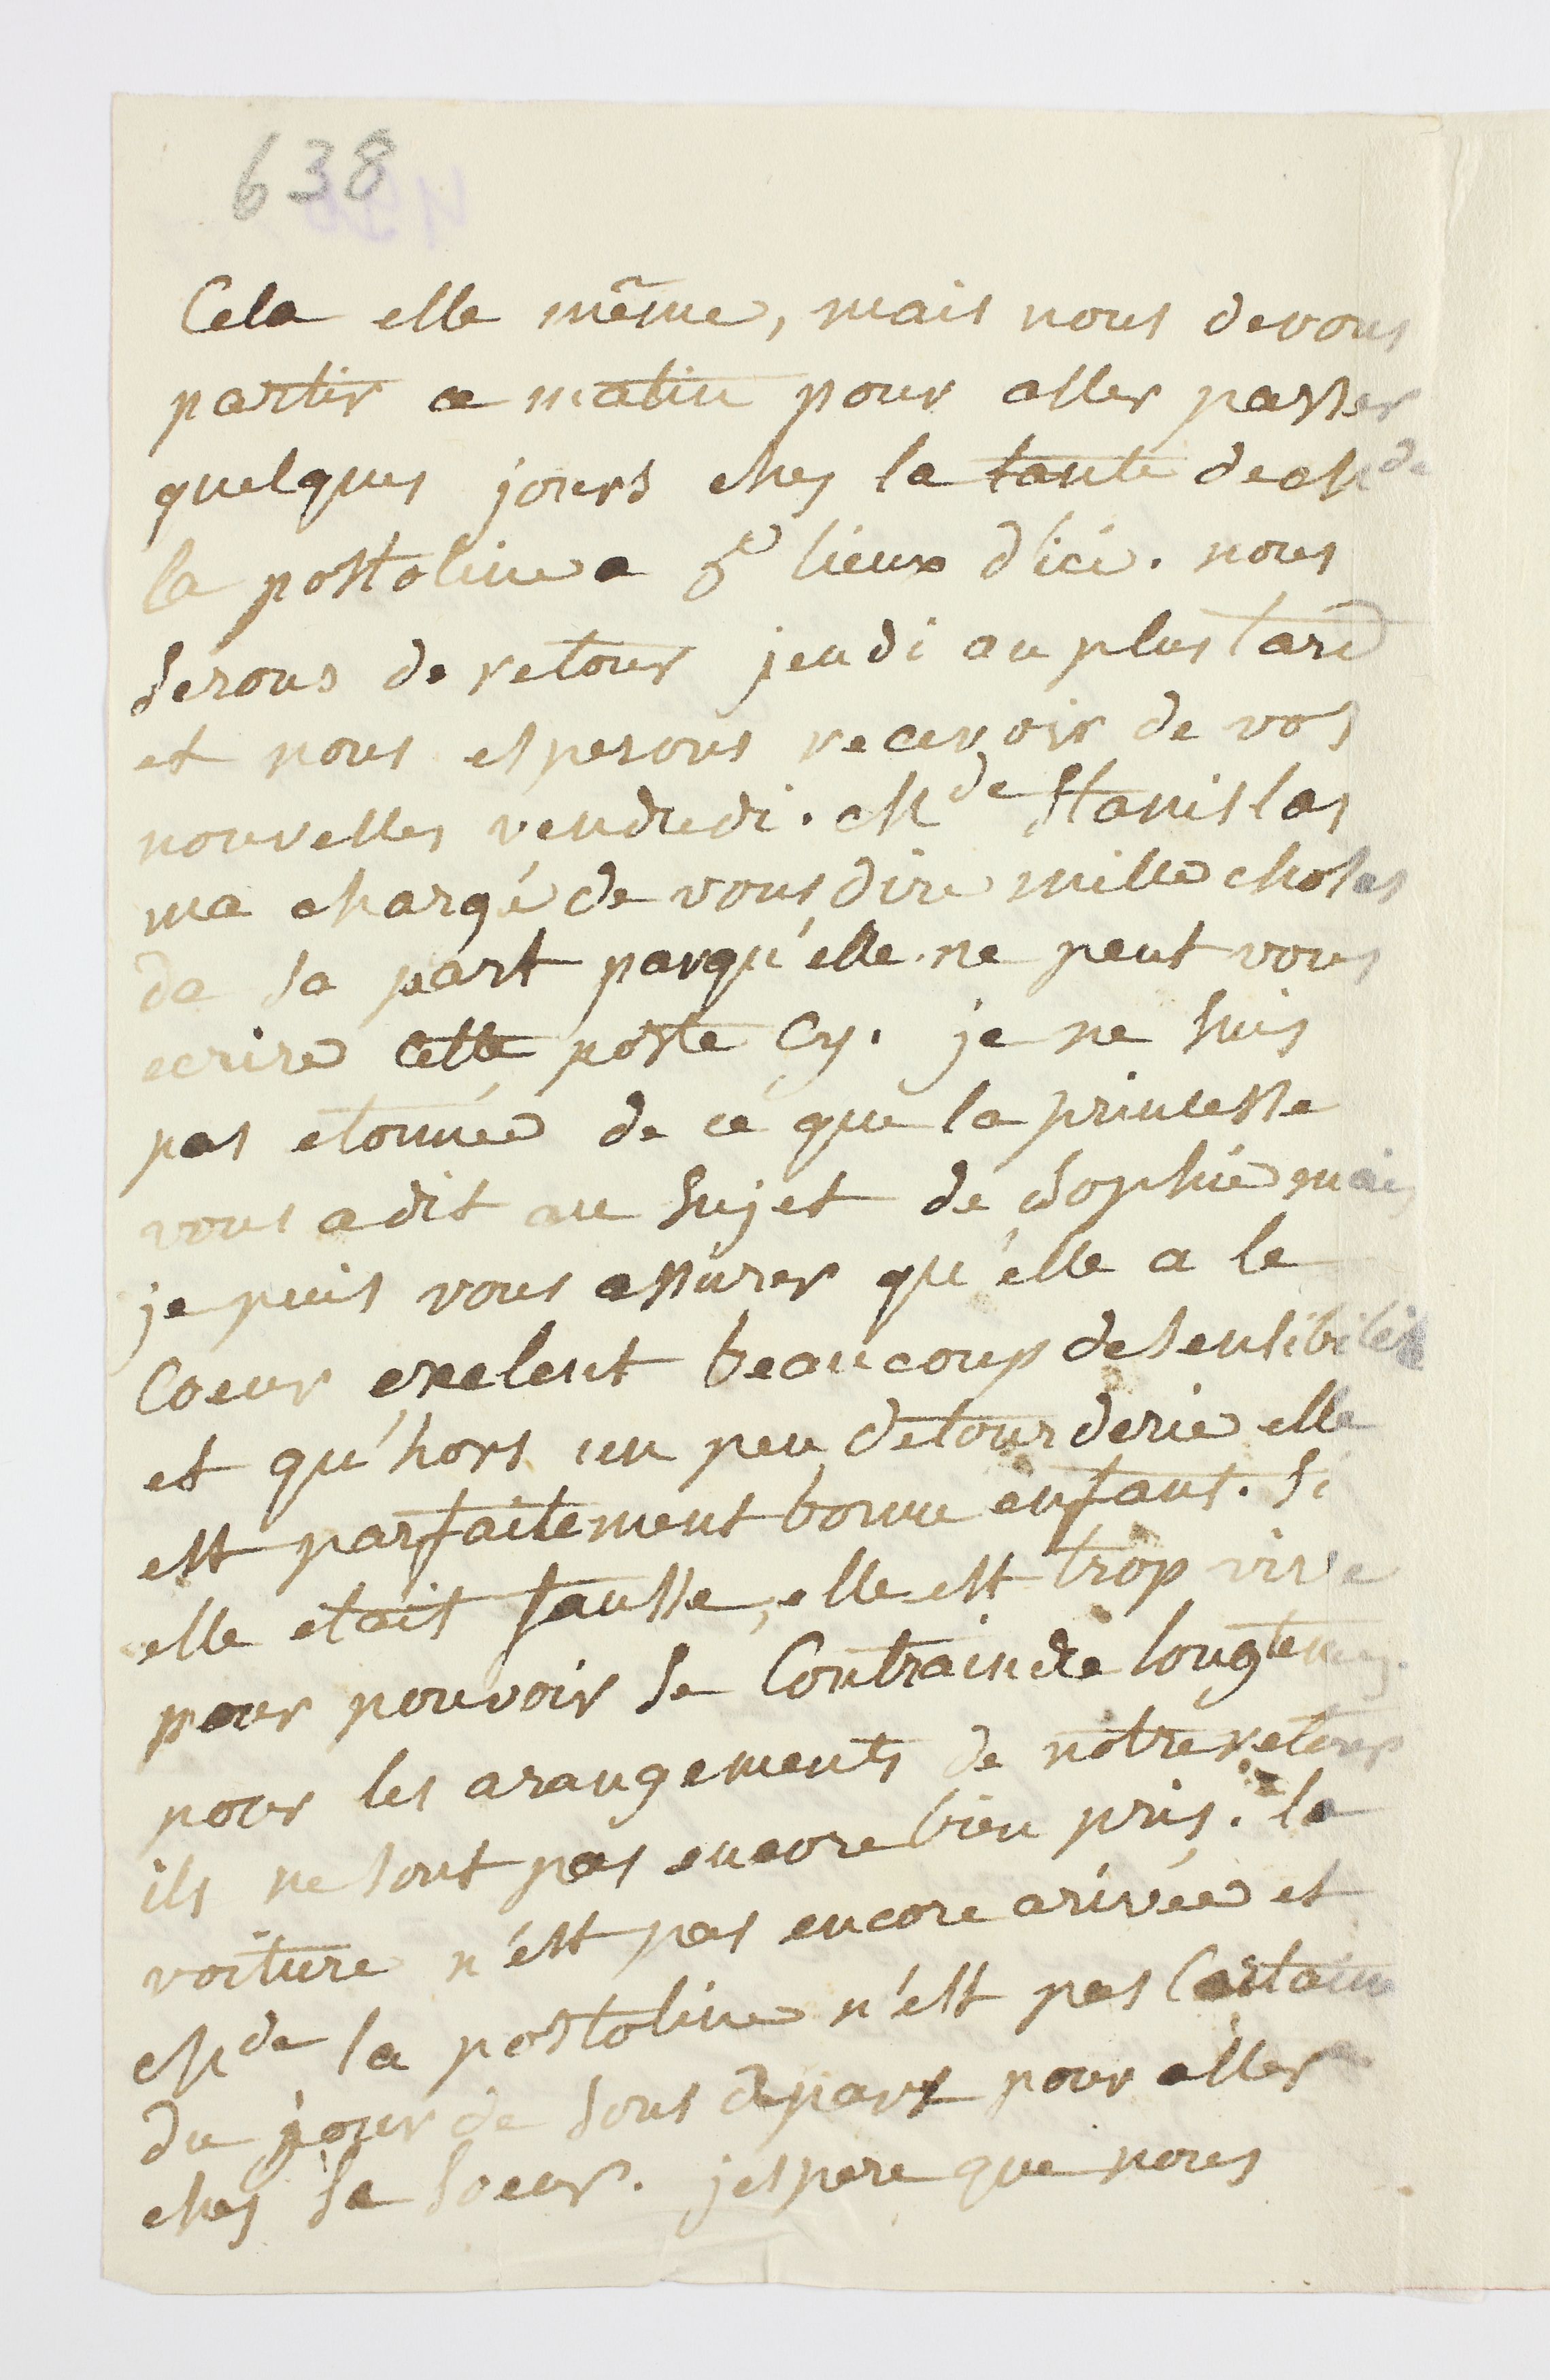 638
Cela elle même, mais nous devons
partir ce matin pour aller passer
quelques jours ches la tante de Mde
la postoline a lieux d'ici. nous
serons de retour jeudi au plus tard
et nous esperons recevoir de vos
nouvelles vendredi. Mde Stanislas
ma chargé de vous dire mille choses
de sa part parqu'elle ne peut vous
ecrire cette poste Cy. je ne suis
pas etonnée de ce que la princesse
vous a dit au sujet de Sophie mais
je puis vous assurer qu'elle a le
Coeur exelent beaucoup de sensibilité
et qu'hors un peu detourderie elle
est parfaitement bonne enfant. si
elle etait fausse, elle est trop vive
pour pouvoir se Contraindre longtems.
pour les arangements de notre retour
ils ne sont pas encore bien pris. la
voiture n'est pas encore arivée et
Mde la postoline n'est pas Certaine
du jour de sons depart pour aller
ches sa soeur. jespere que nous